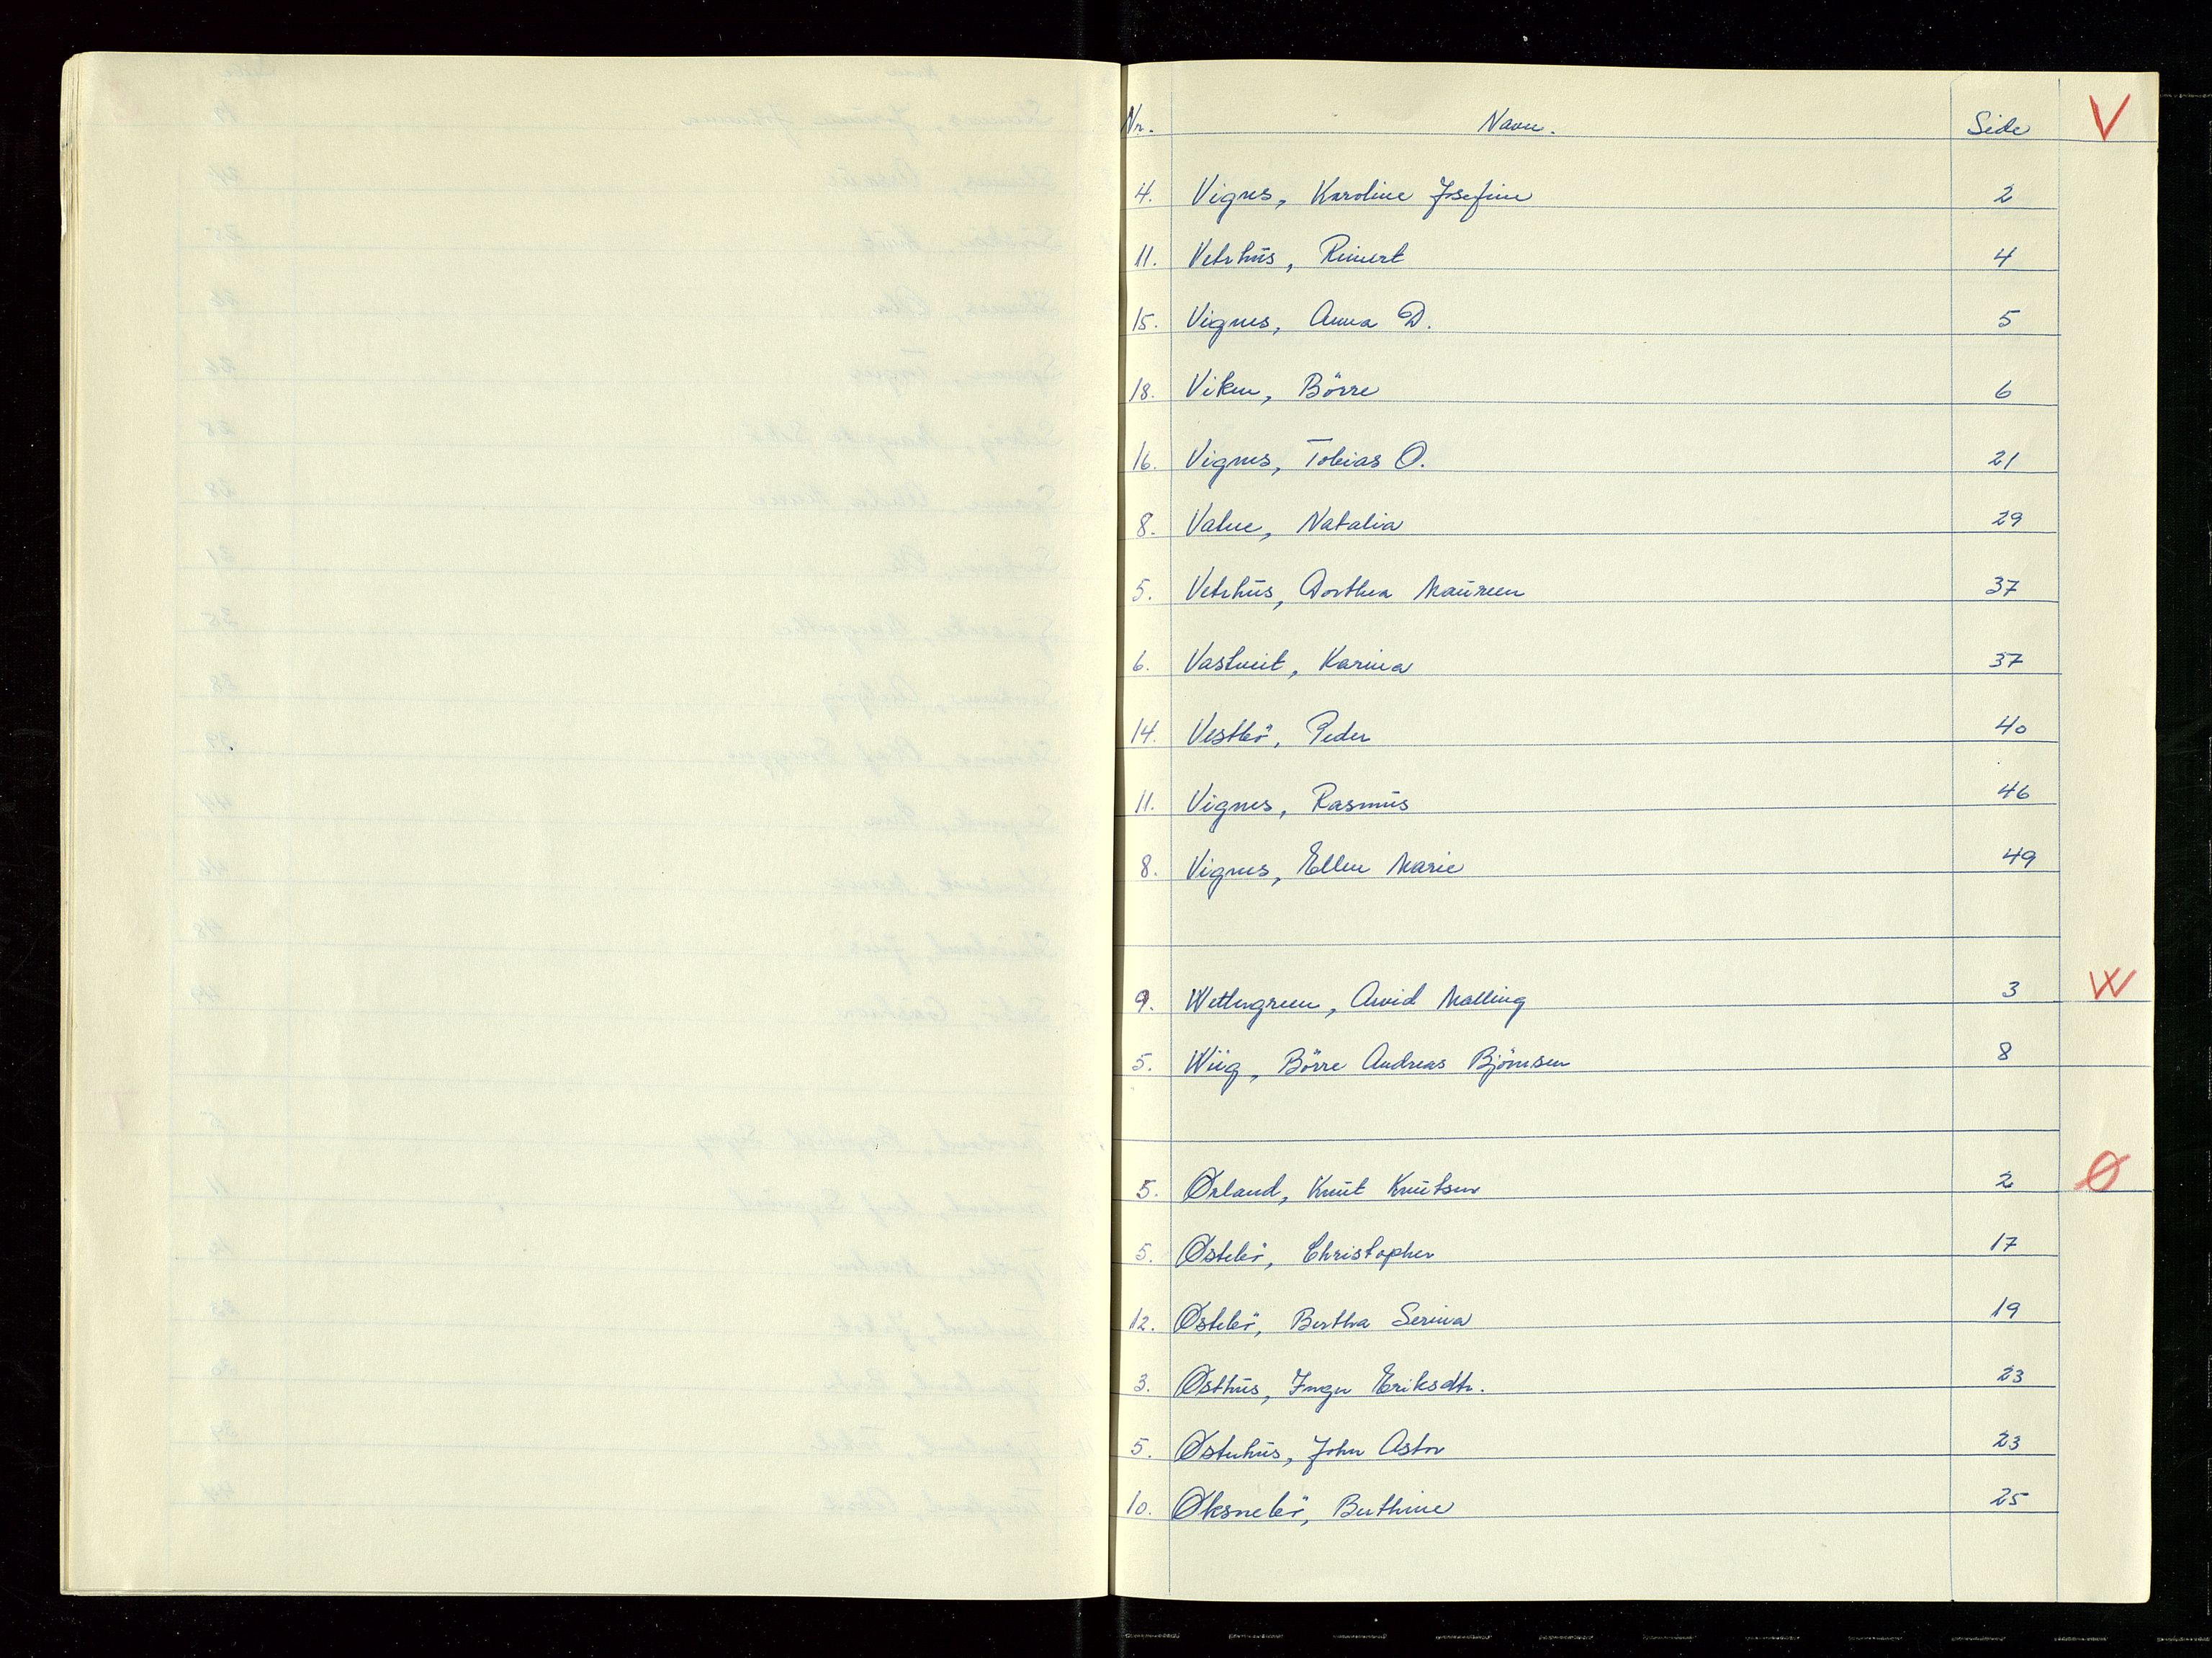 Nr. Navn. Side V
4. Vignes, Karoline Josefine 2
11. Vetrhus, Reinert 4
15. Vignes, Anna D. 5
18. Viken, Börre 6
16. Vignes, Tobias O. 21
8. Valne, Natalia 29
5. Vetrhus, Dorthea Maureen 37
6. Vastveit, Karina 37
14. Vestbö, Peder 40
11. Vignes, Rasmus 46
8. Vignes, Ellen Marie 49
9. Wettergreen, Arvid Malling 3 W
5. Wiig, Börre Andreas Björnsen 8
5. Ørland, Knut Knutsen 2 Ø
5. Østebö, Christopher 17
12. Østebö, Bertha Serina 19
3. Østhus, Inger Eriksdtr. 23
5. Østenhus, John Astor 23
10. Øksnebö, Berthine 25